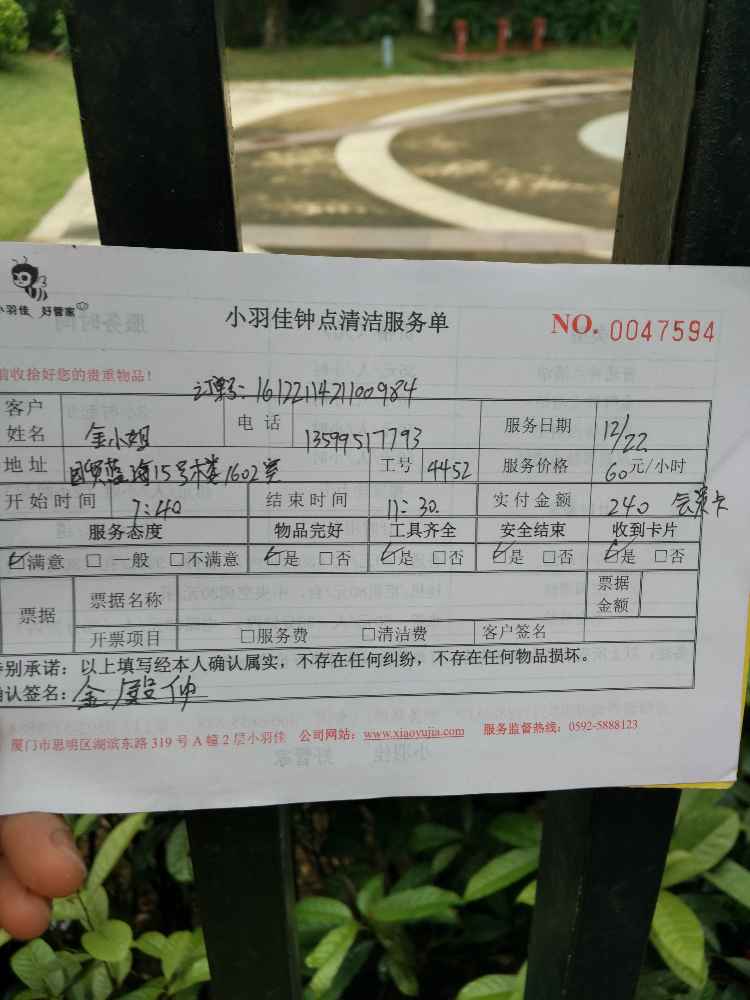 小羽佳 好管家
小羽佳钟点清洁服务单
NO. 0047594
前收拾好您的贵重物品!
订单号:1612211421100984
客户姓名 金小姐 电话 13599517793 服务日期 12/22
地址 国贸蓝海15号楼1602室 工号 4452 服务价格 60元/小时
开始时间 7:40 结束时间 11:30. 实付金额 240 会员卡
服务态度 物品完好 工具齐全 安全结束 收到卡片
☑满意 □ 一般 □不满意 ☑是 □否 ☑是 □否 ☑是 □否 ☑是 □否
票据 票据名称 票据金额
开票项目 □服务费 □清洁费 客户签名
特别承诺:以上填写经本人确认属实,不存在任何纠纷,不存在任何物品损坏。
确认签名:金
厦门市思明区湖滨东路 319 号 A 幢 2 层小羽佳 公司网站:www.xiaoyujia.com 服务监督热线:0592-5888123